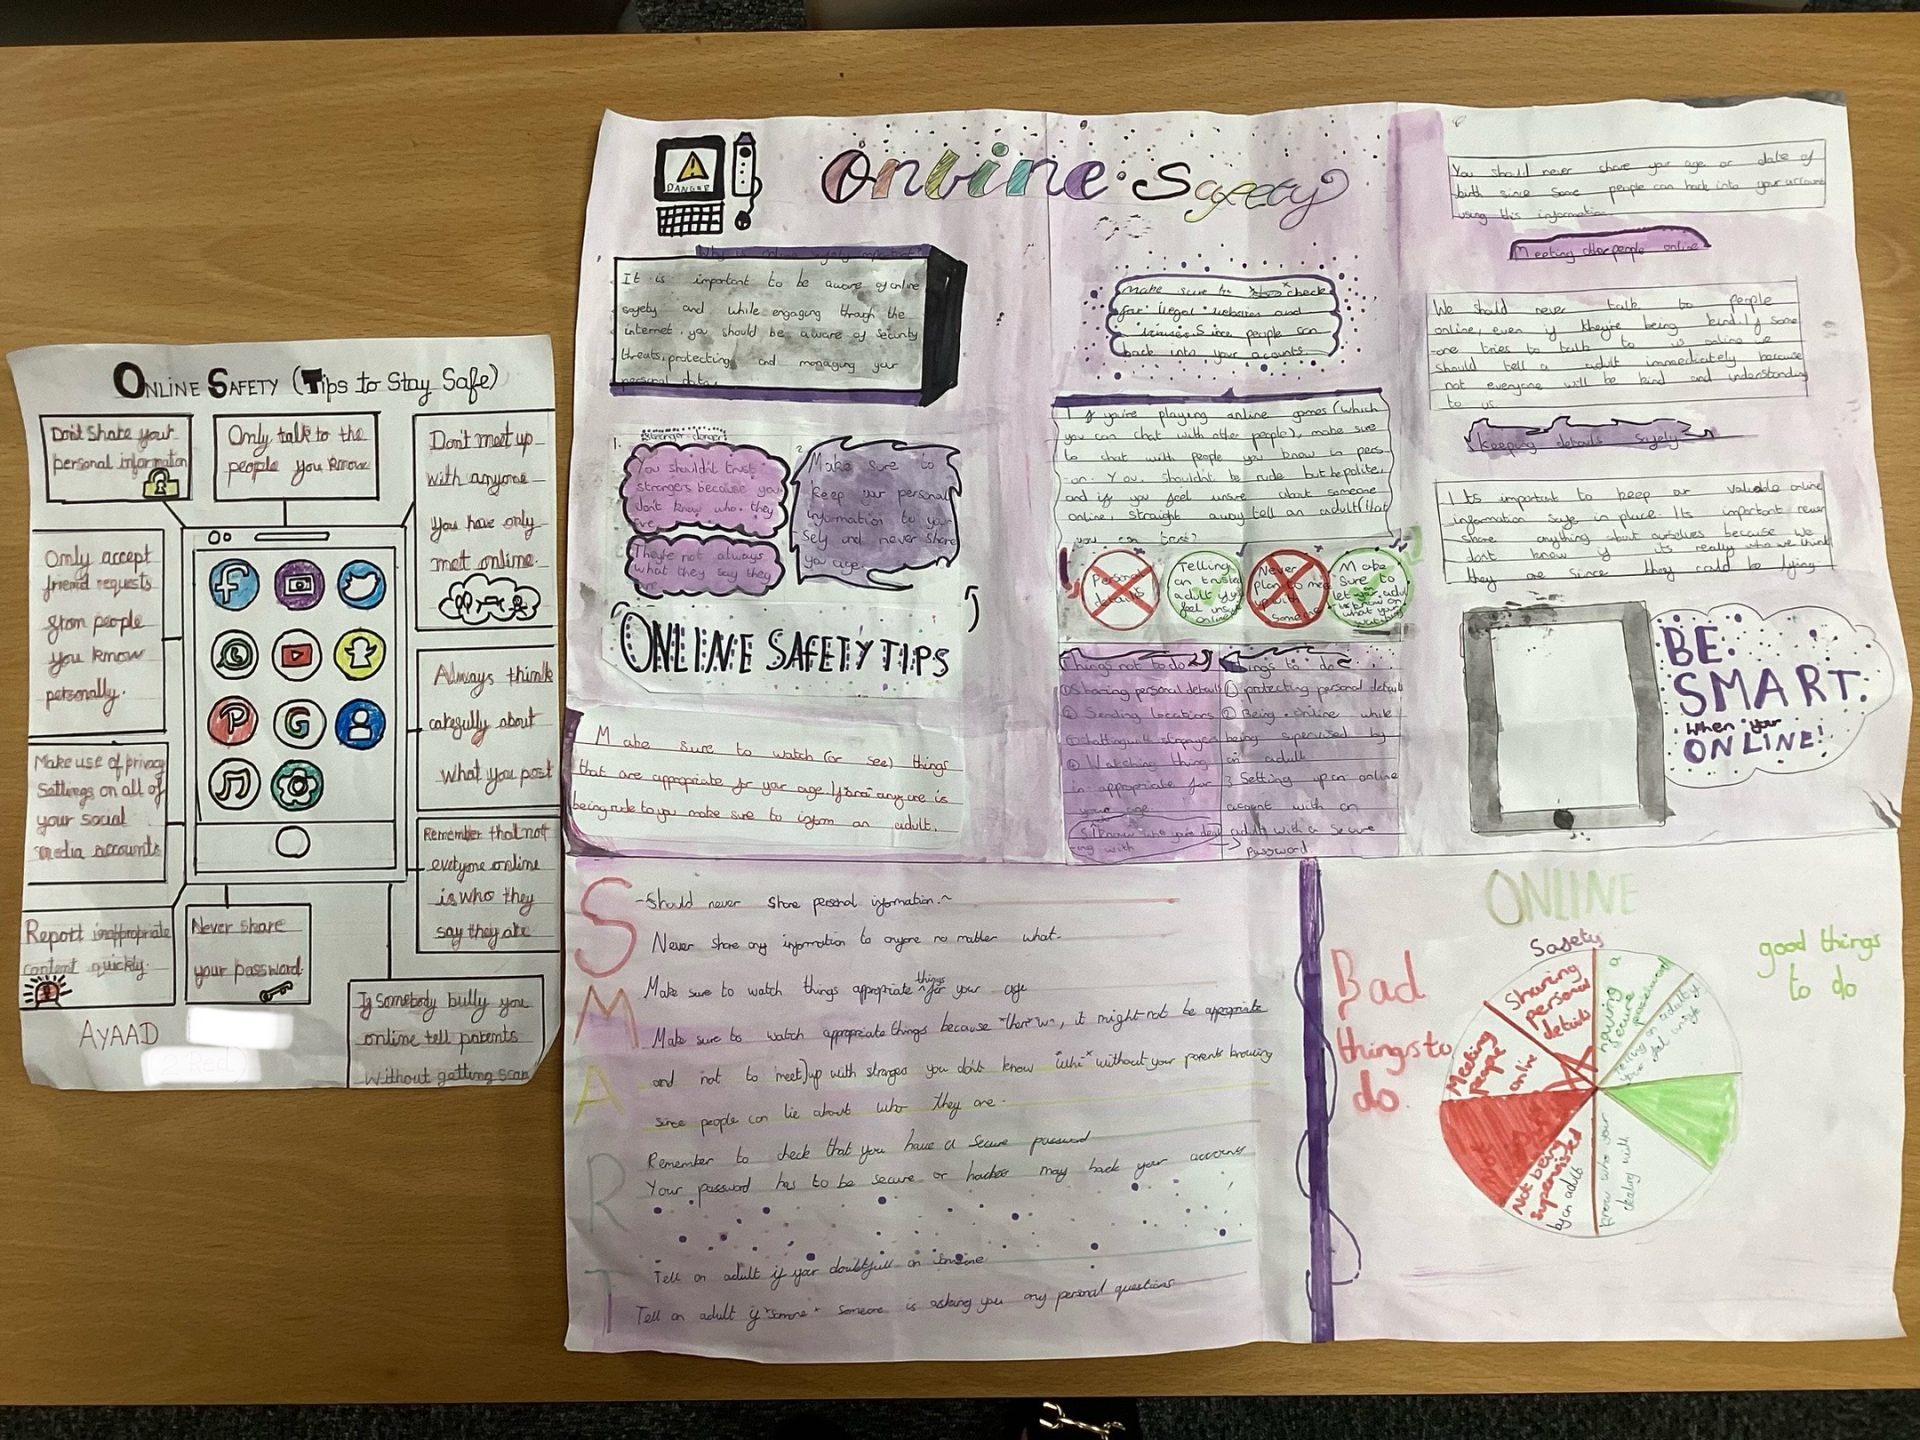 ONLINE SAFETY (TIPS TO STAY SAFE)
Don't share your
personal information
Only talk to the
people you know
Don't meet up
with anyone
you have only
met online.
Only accept
friend requests
from people
you know
personally.
Always think
carefully about
what you post
Make use of privacy
settings on all of
your social
media accounts
Remember that not
everyone online
is who they
say they are
Report inappropriate
content quickly.
Never share
your password
If somebody bully you
online tell parents
without getting scar
AYAAD
DANGER
Online Safety
It is important to be aware of online
safety and while engaging through the
internet. you should be aware of security
threats, protecting and managing your
personal data.
1. Stranger danger!
You shouldn't trust
strangers because you
don't know who they
are.
They're not always
what they say they
are.
2.
Make sure to
keep our personal
information to your
self and never share
you age.
ONLINE SAFETY TIPS
Make sure to watch (or see) things
that are appropriate for your age
being rude to you make sure to inform an adult.
Make sure to check
for illegal websites and
viruses. Since people can
hack into your acounts
If you're playing online games (which
you can chat with other people), make sure
to chat with people you know in pers
-on. You shouldn't be rude but be polite,
and if you feel unsure about someone
online, straight away tell an adult (that
you can trust)
Personal
details
Telling
an trusted
adult if you
feel unsure
online
Never
plan to meet
up with
someone
Make
sure to
let your adult
know on
what your
watching
Things not to do
① Sharing personal details
② Sending locations
④ Watching thing
in appropriate for
your age
5. know who your deal
-ing with
things to do
① protecting personal details
② Being online while
being supervised by
an adult
3 Setting up an online
account with an
adult with a secure
password
You should never share your age or date of
birth since some people can hack into your account
using this information
Meeting other people online
We should never talk to people
online, even if they're being kind. If some
-one tries to talk to us online we
should tell a adult immediately because
not everyone will be kind and understanding
to us
Keeping details safely
Its important to keep our valuable online
information safe in place. Its important never
share anything about ourselves because we
dont know if it's really who we think
they are since they could be lying
BE
SMART
when your
ONLINE!
SMART
Should never share personal information.
Never share any information to anyone no matter what.
Make sure to watch things appropriate things for your age
Make sure to watch appropriate things because there's, it might not be appropriate
and not to meet up with strangers you don't know without your parents knowing
since people can lie about who they are.
Remember to check that you have a secure password
Your password has to be secure or hacker may hack your accounts
Tell an adult if your doubtfull on someone
Tell an adult if someone is asking you any personal questions
ONLINE
Safety
Bad
things to
do.
good things
to do
Sharing
personal
details
Meeting
people
online
Not being
supervised
by an adult
having a
secure
password
know who your
dealing with